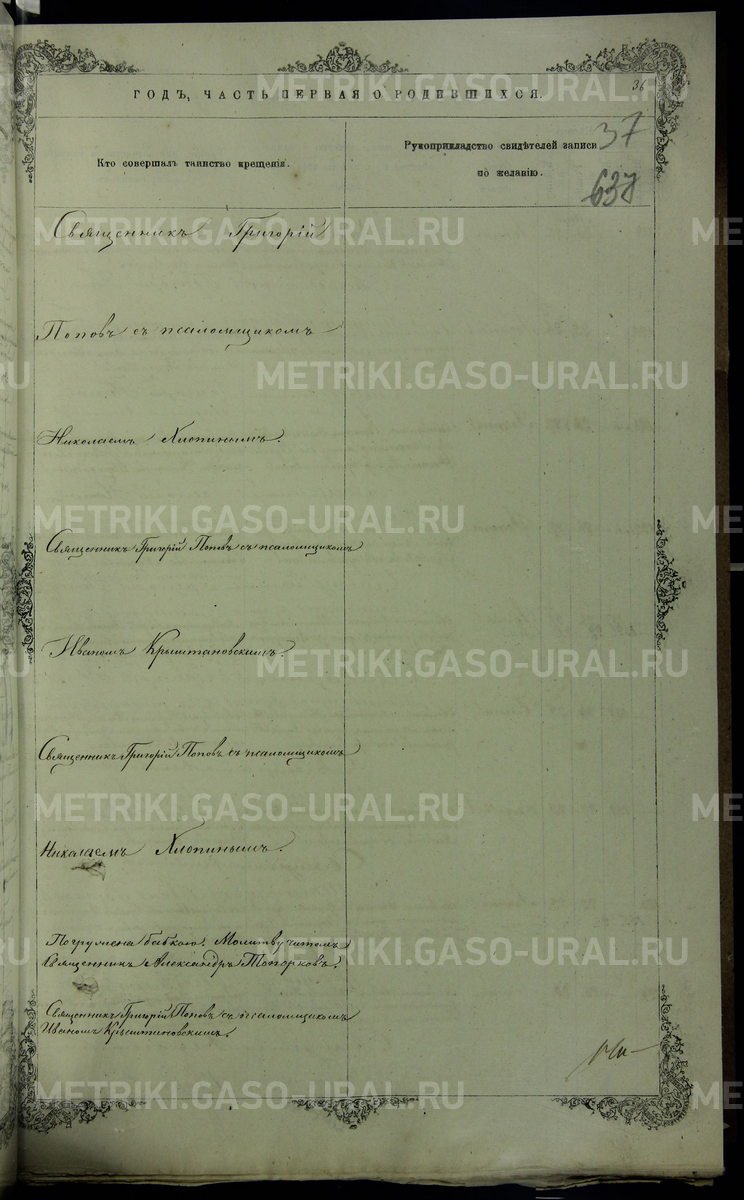 36
ГОДЪ, ЧАСТЬ ПЕРВАЯ О РОДИВШИХСЯ.
37
637
Кто совершалъ таинство крещенія.
Рукоприкладство свидѣтелей записи
по желанію.
Священникъ Григорій
Поповъ съ псаломщикомъ
Николаемъ Хлопинымъ.
Священникъ Григорій Поповъ съ псаломщикомъ
Иваномъ Крыштановскимъ.
Священникъ Григорій Поповъ съ псаломщикомъ
Николаемъ Хлопинымъ.
Погружена бабкою. Молитву читалъ
Священникъ Александръ Топорковъ.
Священникъ Григорій Поповъ съ псаломщикомъ
Иваномъ Крыштановскимъ.
METRIKI.GASO-URAL.RU